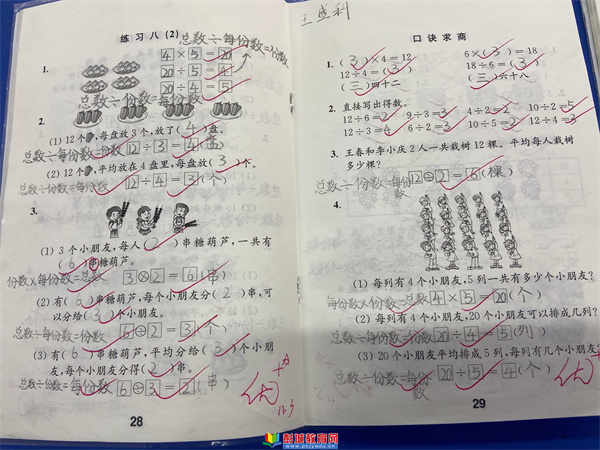 练习八(2)
总数÷每份数=份数
1.
4×5=20
20÷5=4
20÷4=5
总数÷份数=每份数
2.
(1) 12个,每盘放3个,放了(4)盘。
总数÷每份数=份数 12÷3=4(盘)
(2) 12个,平均放在4盘里,每盘放(3)个。
总数÷份数=每份数 12÷4=3(个)
3.
(1) 3个小朋友,每人(2)串糖葫芦,一共有
(6)串糖葫芦。
份数×每份数=总数 3×2=6(串)
(2) 有(6)串糖葫芦,每个小朋友分(2)串,可
以分给(3)个小朋友。
总数÷每份数=份数 6÷2=3(个)
(3) 有(6)串糖葫芦,平均分给(3)个小朋
友,每个小朋友分得(2)串。
总数÷份数=每份数 6÷3=2(串)
优
11.3
28
口诀求商
1. (3)×4=12 6×(3)=18
12÷4=(3) 18÷6=(3)
(三)四十二 (三)六十八
2. 直接写出得数。
12÷6=2 9÷3=3 4÷2=2 10÷2=5
12÷3=4 6÷2=3 10÷5=2 12÷4=3
3. 王春和李小庆2人一共栽树12棵。平均每人栽树
多少棵?
总数÷份数=每份数 12÷2=6(棵)
4.
(1) 每列有4个小朋友,5列一共有多少个小朋友?
每份数×份数=总数 4×5=20(个)
(2) 每列有4个小朋友,20个小朋友可以排成几列?
总数÷每份数=份数 20÷4=5(列)
(3) 20个小朋友平均排成5列,每列有几个小朋友?
总数÷份数=每份数 20÷5=4(个)
优
29
彭城教育网
www.pcjyedu.cn